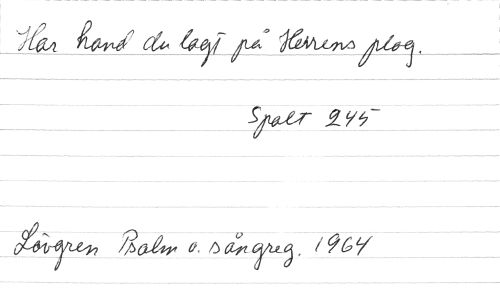 Har hand du lagt på Herrens plog.
Spalt 245
Lövgren Psalm o. sångreg. 1964